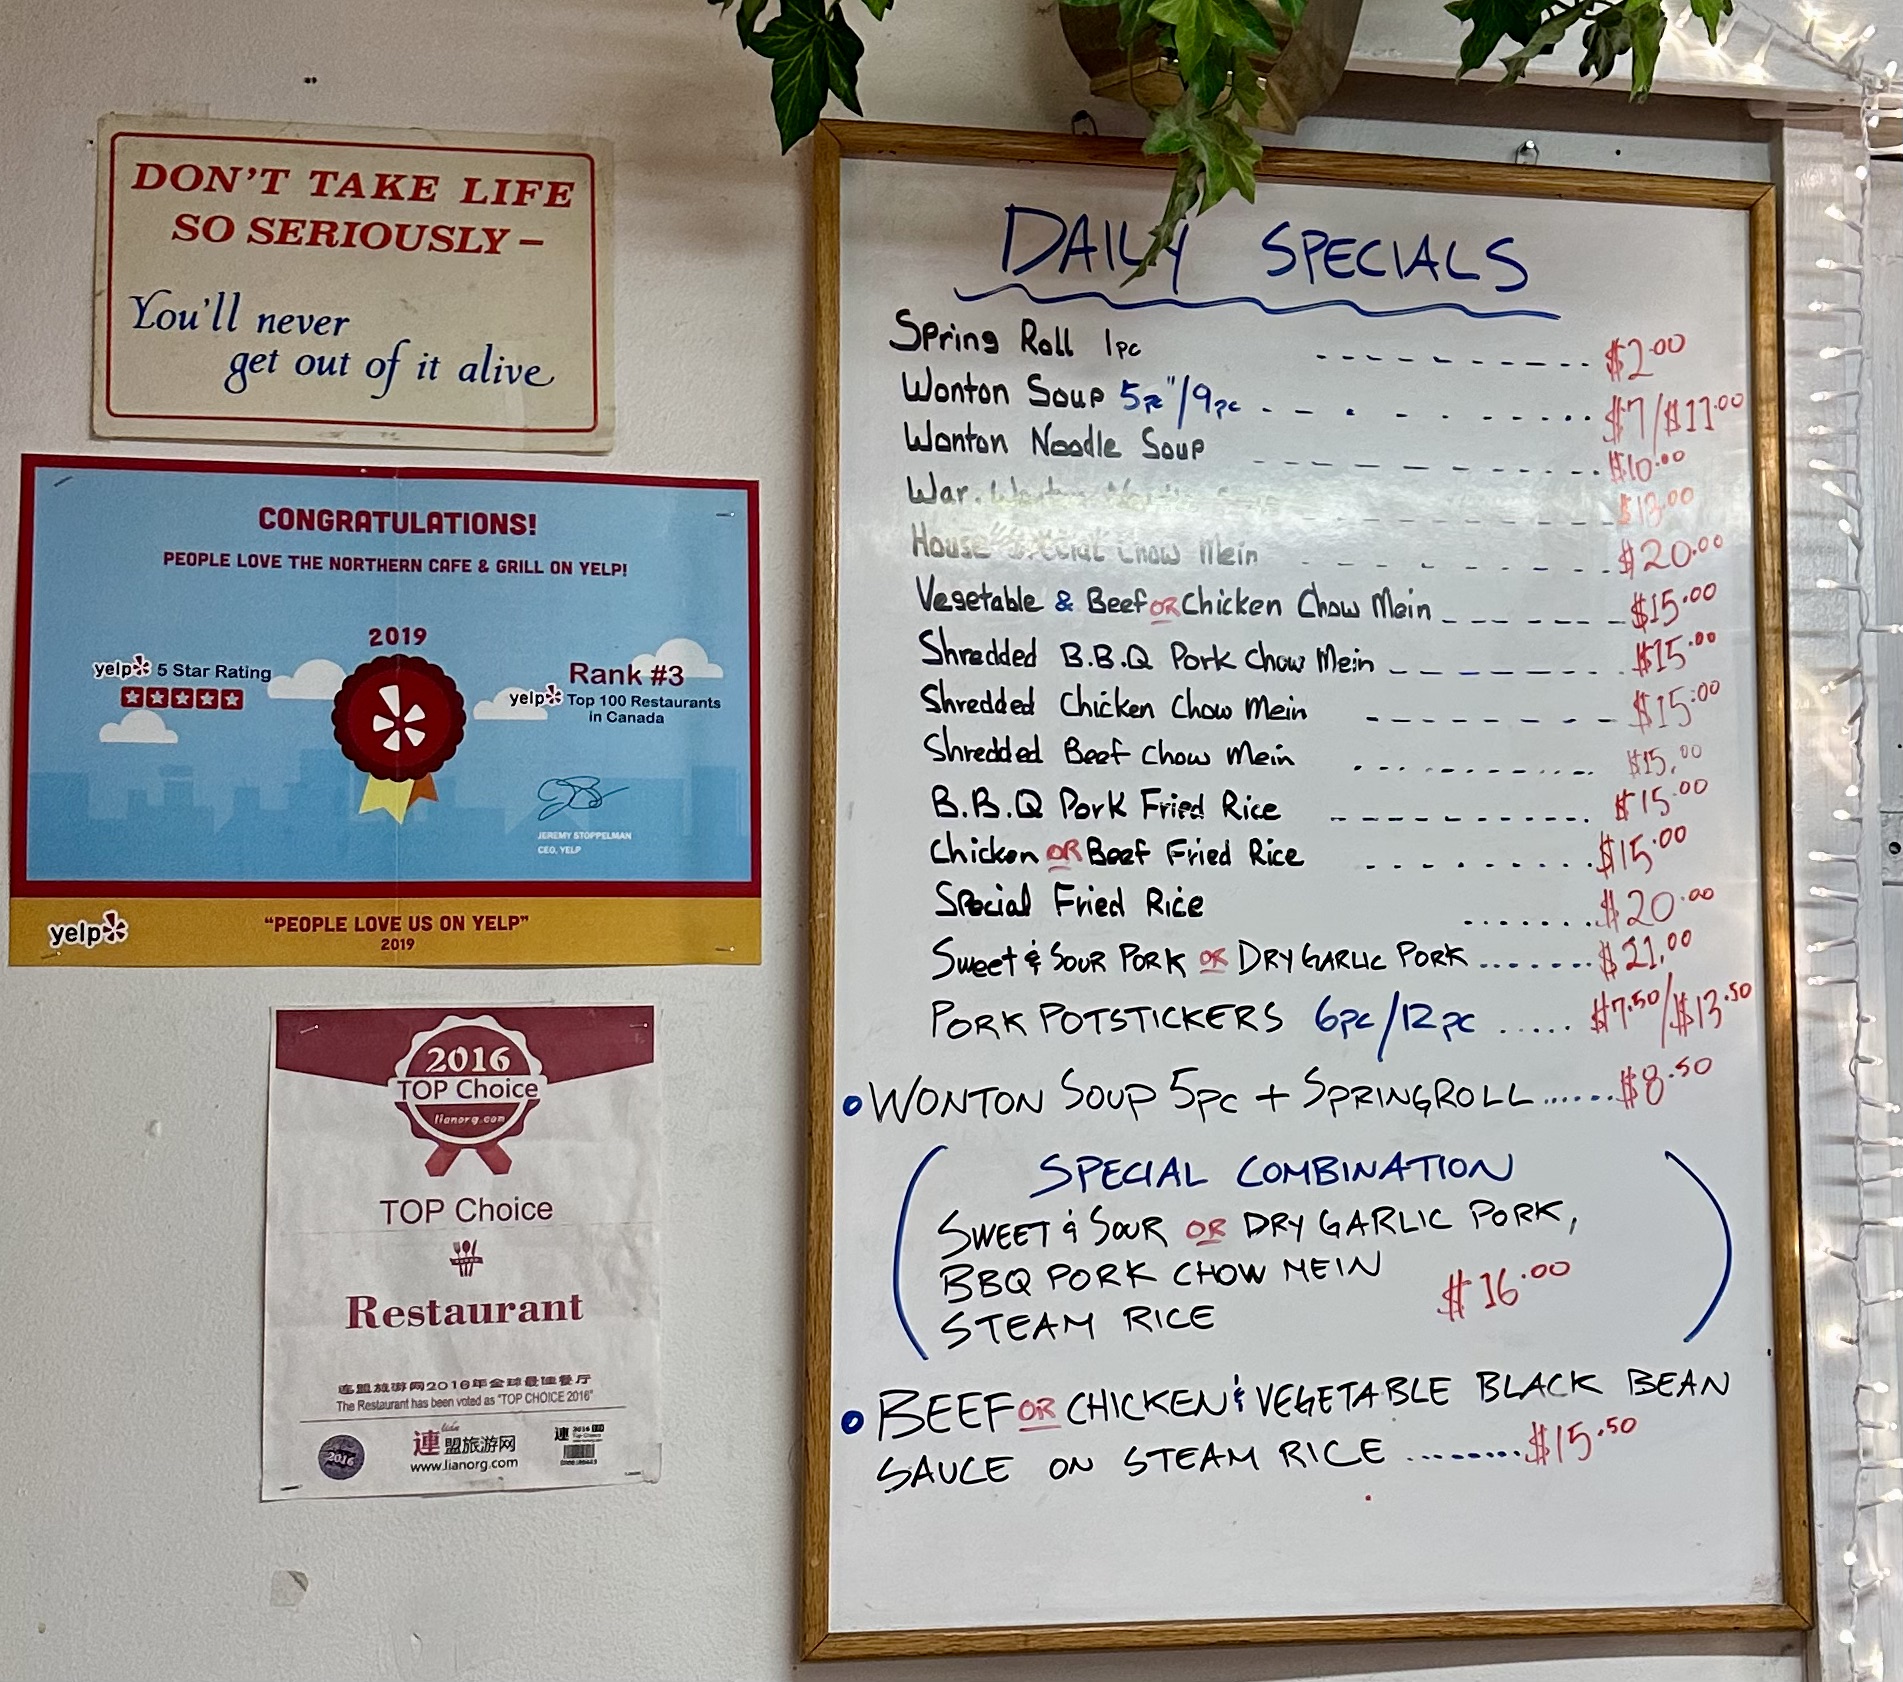 DON'T TAKE LIFE
SO SERIOUSLY –
You'll never
get out of it alive
CONGRATULATIONS!
PEOPLE LOVE THE NORTHERN CAFE & GRILL ON YELP!
2019
yelp 5 Star Rating
Rank #3
yelp Top 100 Restaurants
in Canada
JEREMY STOPPELMAN
CEO, YELP
yelp
"PEOPLE LOVE US ON YELP"
2019
2016
TOP Choice
lianorg.com
TOP Choice
Restaurant
连盟旅游网2016年全球最佳餐厅
The Restaurant has been voted as "TOP CHOICE 2016"
2016
連盟旅游网
www.lianorg.com
連
DAILY SPECIALS
Spring Roll 1pc $2.00
Wonton Soup 5pc/9pc $7/$11.00
Wonton Noodle Soup $10.00
War. Wonton $13.00
House Special Chow Mein $20.00
Vegetable & Beef OR Chicken Chow Mein $15.00
Shredded B.B.Q Pork Chow Mein $15.00
Shredded Chicken Chow Mein $15.00
Shredded Beef Chow Mein $15.00
B.B.Q Pork Fried Rice $15.00
Chicken OR Beef Fried Rice $15.00
Special Fried Rice $20.00
Sweet & SOUR PORK OR DRY GARLIC PORK $21.00
PORK POTSTICKERS 6pc/12pc $7.50/$13.50
• WONTON SOUP 5pc + SPRINGROLL $8.50
SPECIAL COMBINATION
SWEET & SOUR OR DRY GARLIC PORK,
BBQ PORK CHOW MEIN
STEAM RICE $16.00
• BEEF OR CHICKEN & VEGETABLE BLACK BEAN
SAUCE ON STEAM RICE $15.50